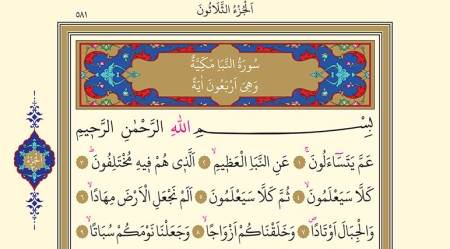 اَلْجُزْءُ الثَّلَاثُونَ
٥٨١
سُورَةُ النَّبَأِ مَكِّيَّةٌ
وَهِيَ اَرْبَعُونَ اٰيَةً
بِسْمِ اللّٰهِ الرَّحْمٰنِ الرَّحِيمِ
عَمَّ يَتَسَٓاءَلُونَۚ ١ عَنِ النَّبَأِ الْعَظِيمِۙ ٢ اَلَّذ۪ي هُمْ ف۪يهِ مُخْتَلِفُونَۜ ٣
كَلَّا سَيَعْلَمُونَۙ ٤ ثُمَّ كَلَّا سَيَعْلَمُونَ ٥ اَلَمْ نَجْعَلِ الْاَرْضَ مِهَادًاۙ ٦
وَالْجِبَالَ اَوْتَادًاۖ ٧ وَخَلَقْنَاكُمْ اَزْوَاجًاۙ ٨ وَجَعَلْنَا نَوْمَكُمْ سُبَاتًاۙ ٩